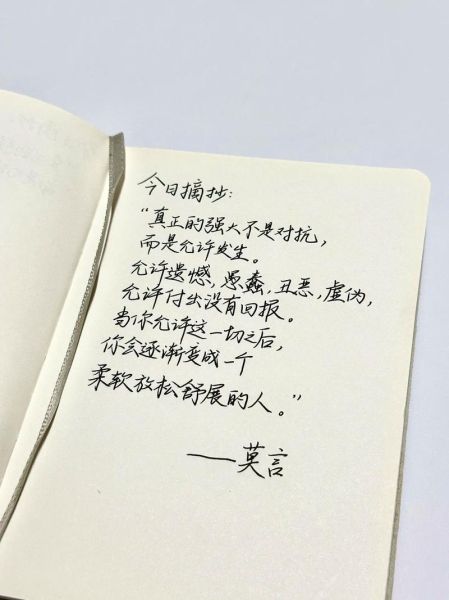 今日摘抄：
“真正的强大不是对抗，
而是允许发生。
允许遗憾，愚蠢，丑恶，虚伪，
允许付出没有回报。
当你允许这一切之后，
你会逐渐变成一个
柔软放松舒展的人。”
——莫言